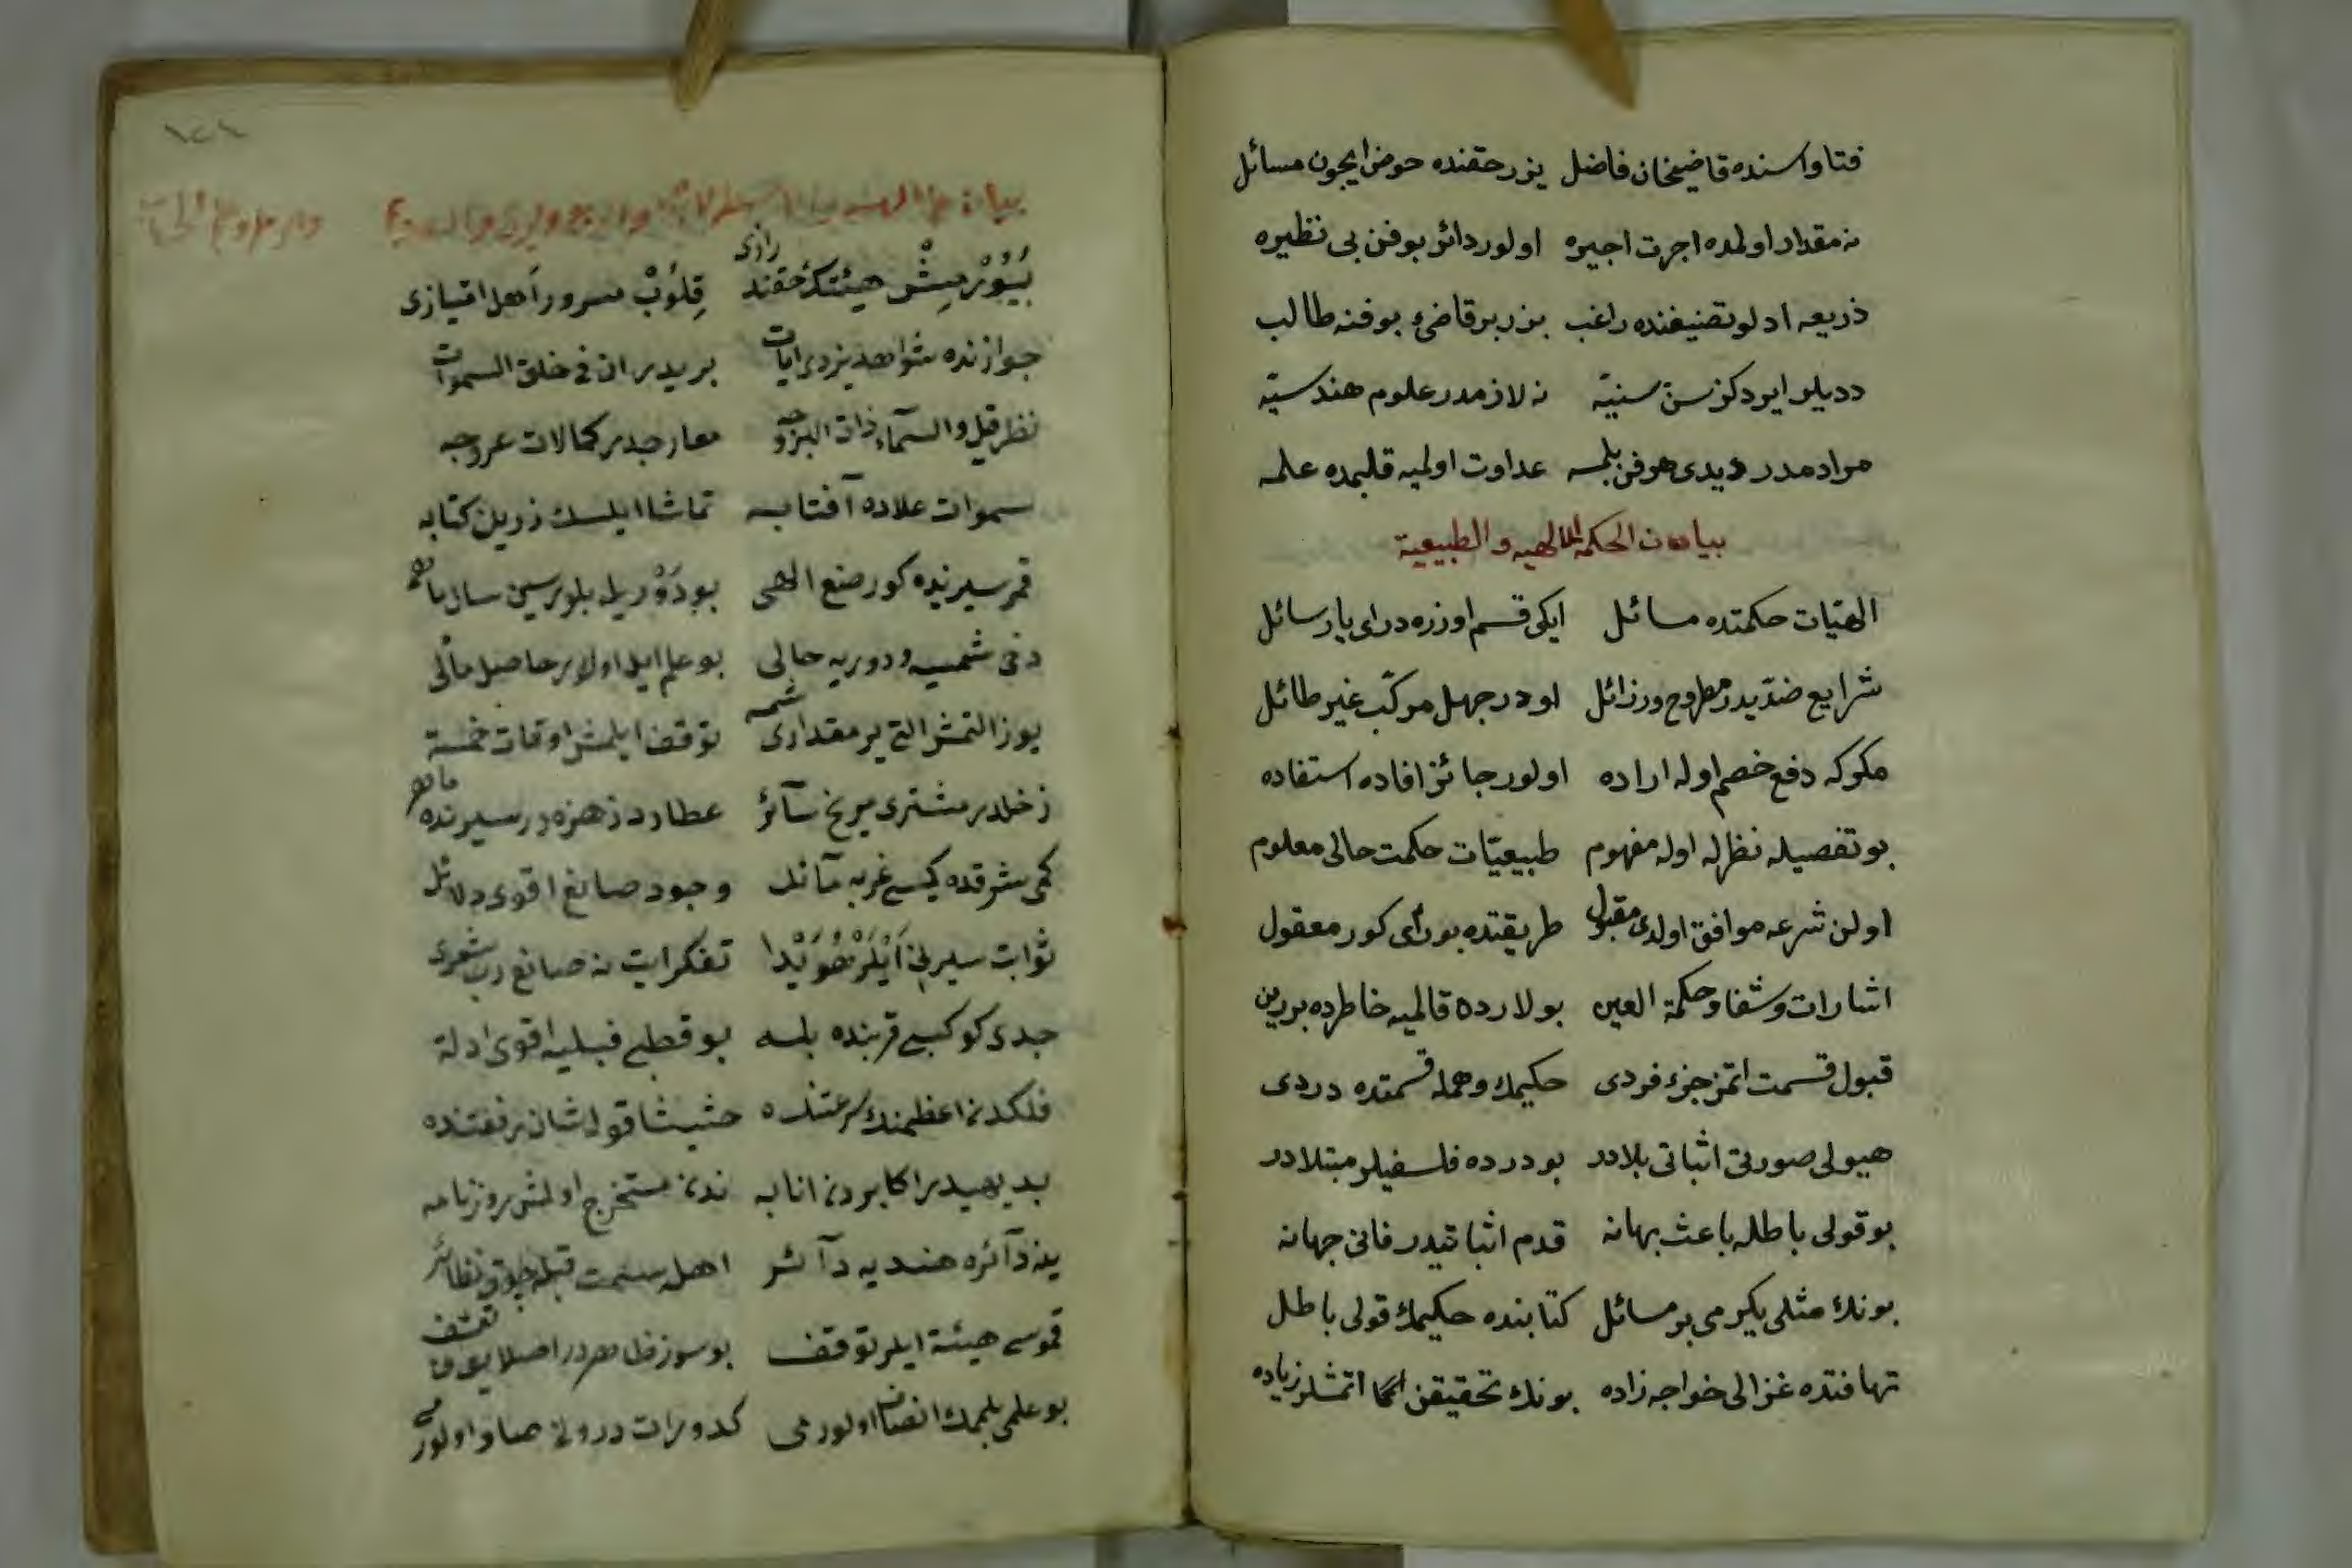 فتاواسنده قاضیخان فاضل یزر حقنده حوض ایچون مسائل
نه مقدار اولمده اجرت اجیره اولور دائر بو فن بی نظیره
ذریعه اد لو تصنیفنده راغب یزر بر قاضئ بو فنه طالب
ددیلر ایودکز سن سنیّه نه لازمدر علوم هندسیّه
مرادمدر دیدی هر فن بلمسه عداوت اولمیه قلبمده علمه
بیان الحکمة الالهیه و الطبیعیة
الهیّات حکمتده مسائل ایکی قسم اوزره در ای یار سائل
شرایع ضدّیدر مطروح ورزائل اودر جهل مرکّب غیر طائل
مکرکه دفع خصم اوله اراده اولور جائز افاده استفاده
بو تفصیله نظرله اوله مفهوم طبیعیّات حکمت حالی معلوم
اولن شرعه موافق اولدی مقبول طریقتده بو رأی کور معقول
اشارات وشفا وحکمة العین بولارده قالمیه خاطرده بو رین
قبول قسمت اتمز جزء فردی حکیمك وهمله قسمتده دردی
هیولی صورتی اثباتی بلادر بو درده فلسفیلر مبتلادر
بو قولی باطله باعث بهانه قدم اثباتیدر فانی جهانه
بونك مثلی یکرمی بر مسائل کتابنده حکیمك قولی باطل
تهافتده غزالی خواجه زاده بونك تحقیقن اتمشلر زیاده
١٢١
بیان
بُیُوْرْمِشْ هیئتك حقنده رازی قِلُوبْ مسرور اَهل امتیازی
جوازنده شواهد یزدی ایات بریدر ان فی خلق السموات
نظر قیل والسّمآء ذات البروجه معارجدر کمالات عروجه
سموات علاده آفتابه تماشا ایلسك زرین کتابه
قمر سیرنده کور صنع الهی بو دَوْر یله بلورسین سال ماهی
دخی شمسیه ودوریه حالی بو علم ایله اولور حاصل مآلی
یوز التمش التی یر مقداری شمسه توقف ایلمش اوقات خمسة
زحلدر مشتری مریخ سآئر عطارد زهره در سیرنده ماهر
کمی شرقده کیسی غربه مآئل وجود صانع اقوی دلائل
ثوابت سیرنی ایلر هویدا تفکر ایت نه صانع رب شعری
جدی کوکبی قربنده بلسه بو قطبی قبلیه اقوی ادلة
فلکدن اعظمنك سرعتنده حثیثا قولی شان رفعتنده
بدیهیدر اکابردن انابه ندن مستخرج اولمش روزنامه
ینه دآئره هندیه دآئر اهله سمت قبله چوق نظائر
قموسی هیئة ایلر توقف بو سوز ظاهر در اصلا یوق تعسف
بو علمی بلمك انصاف اولورمی کدورات درونی صاف اولورمی